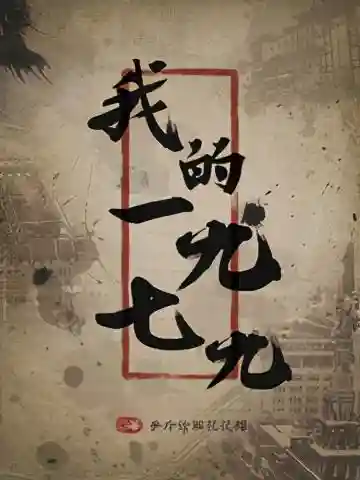 我的一九七九